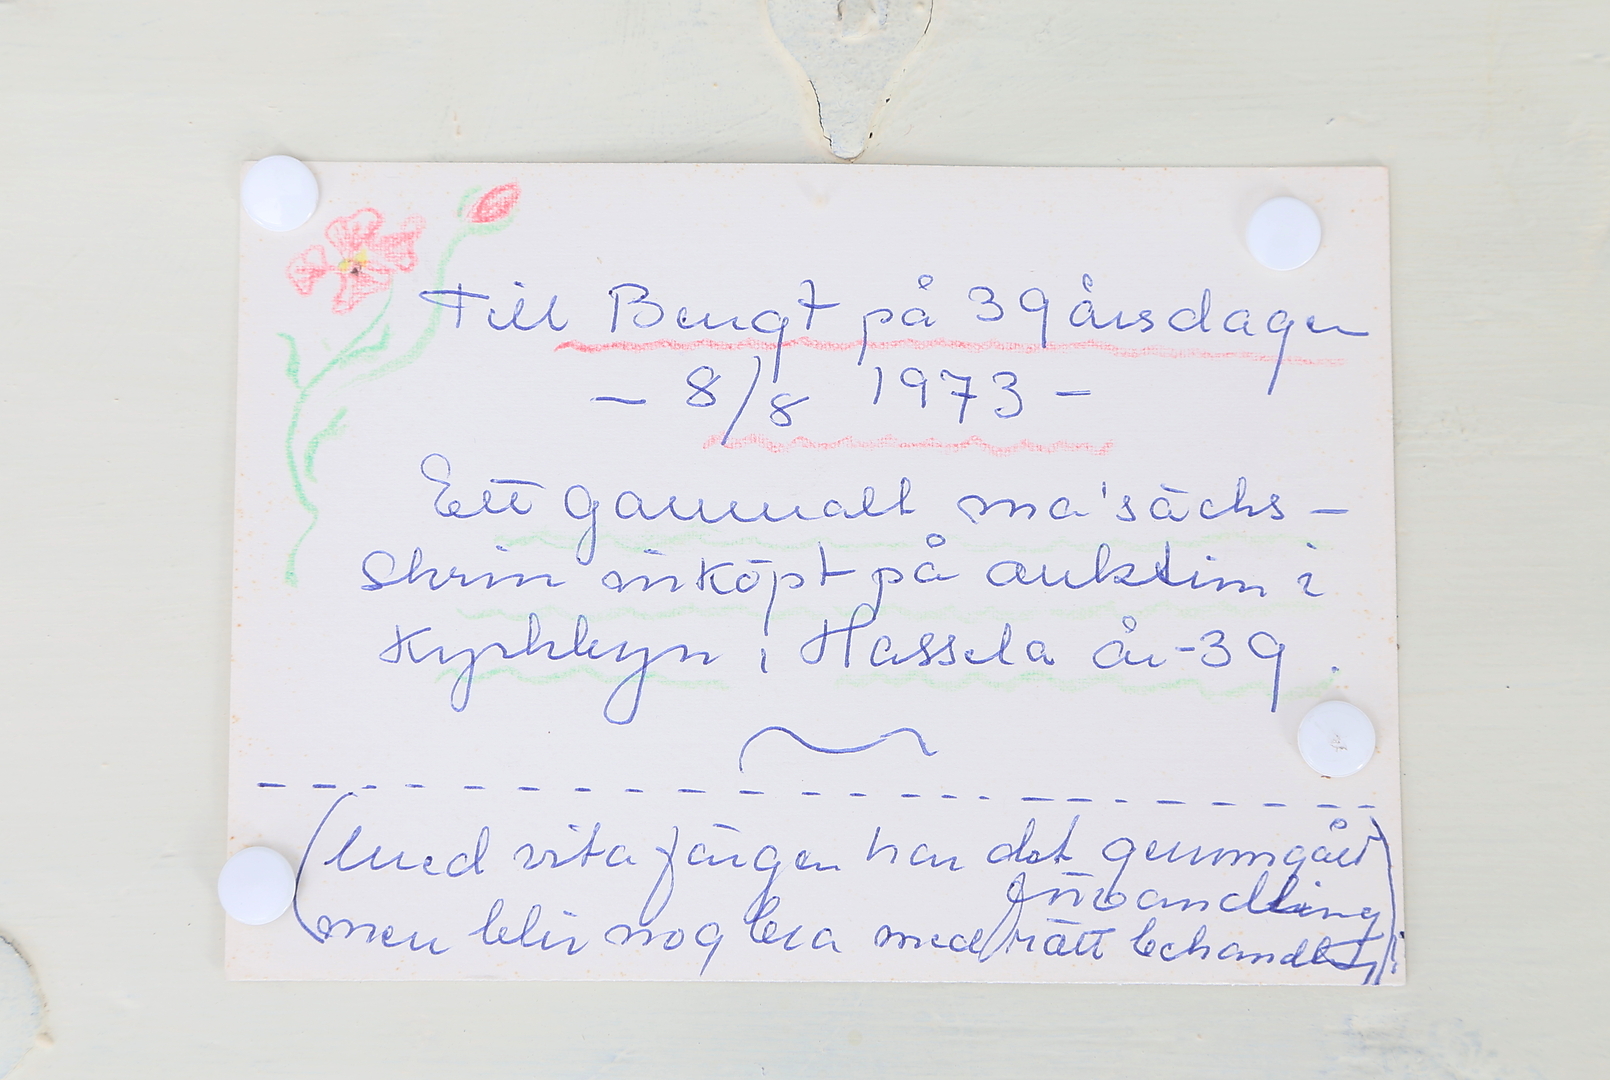 Till Bengt på 39 årsdagen
- 8/8 1973 -
Ett gammalt ma'säcks-
skrin inköpt på auktion i
Kyrkbyn i Hassela år -39.
(Med vita färgen har det genomgått
förvandling
men blir nog bra med rätt behandling)